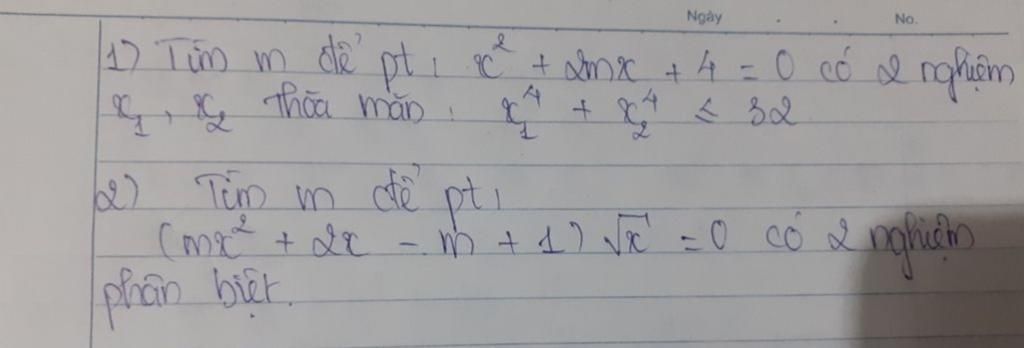 Ngày . . No.
1) Tìm m để pt: x² + 2mx + 4 = 0 có 2 nghiệm
x₁, x₂ thỏa mãn: x₁⁴ + x₂⁴ ≤ 32
2) Tìm m để pt:
(mx² + 2x - m + 1) √x = 0 có 2 nghiệm
phân biệt.